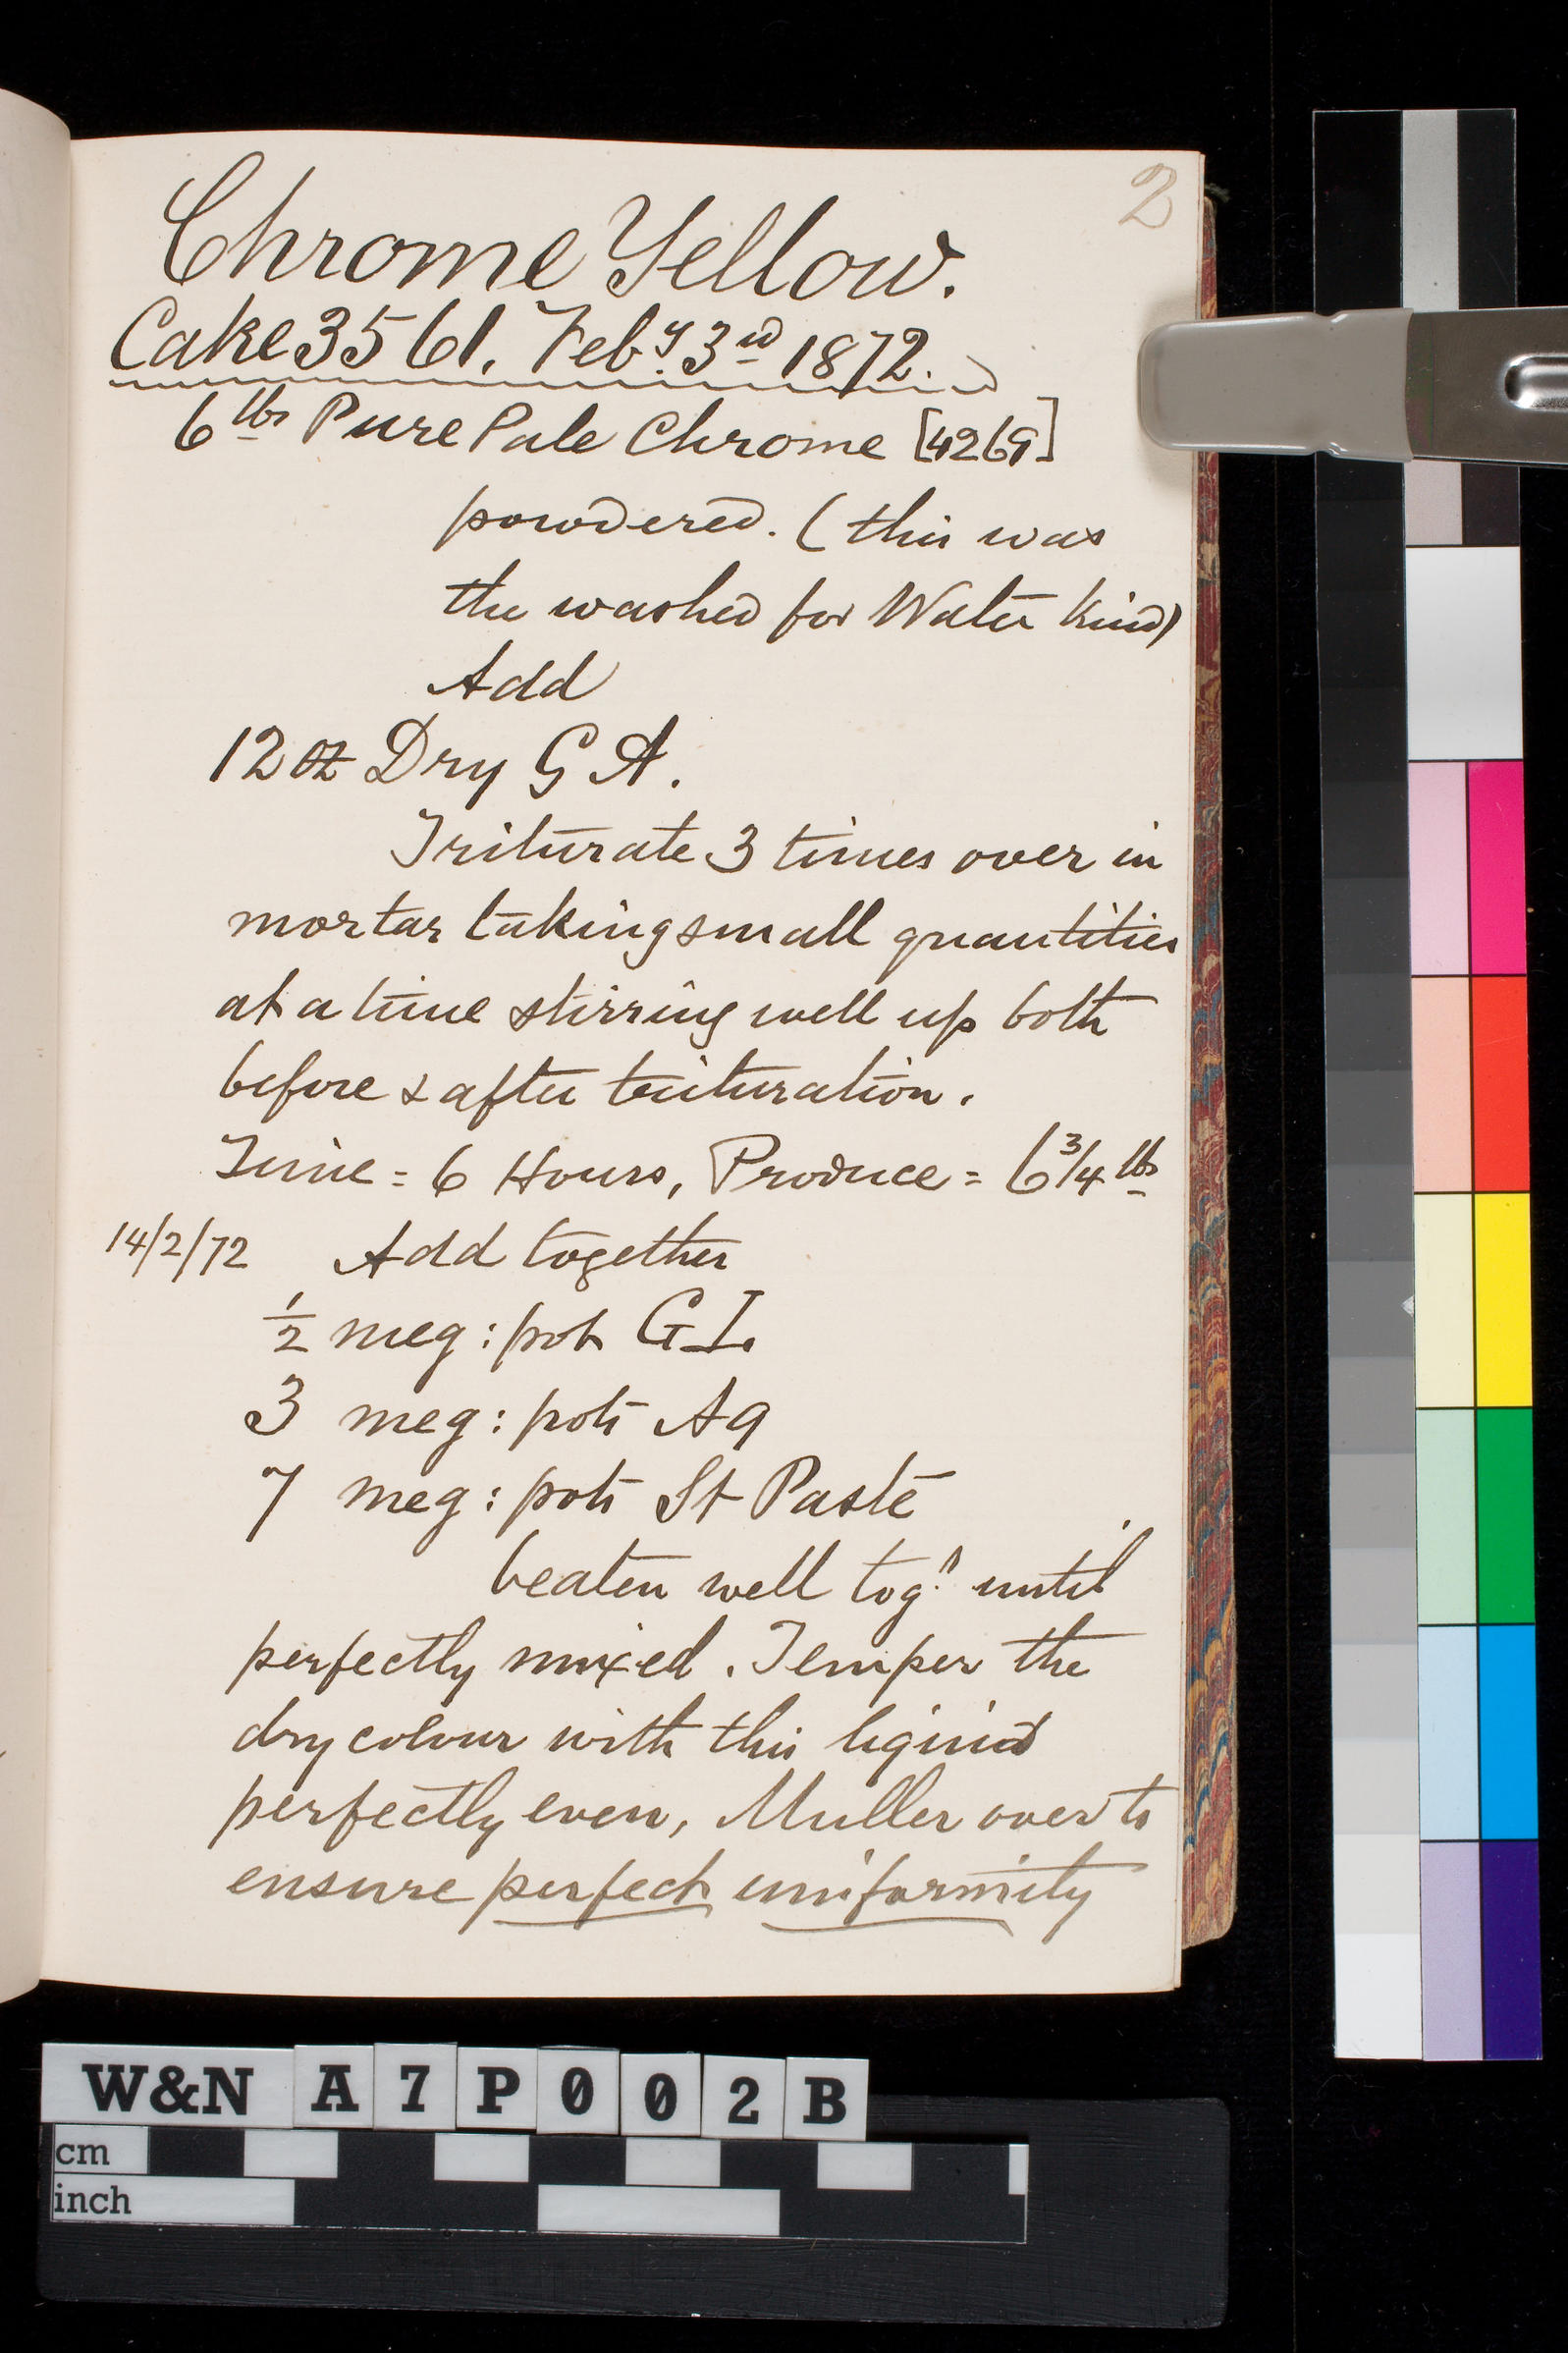 2
Chrome Yellow.
Cake 3561. Feby. 3rd 1872.
6 lbs Pure Pale Chrome [4269]
powdered. (this was
the washed for Water kind)
Add
12 oz Dry G A.
Triturate 3 times over in
mortar taking small quantities
at a time stirring well up both
before & after trituration.
Time = 6 Hours, Produce = 6 3/4 lbs
14/2/72 Add together
1/2 meg: pot G I.
3 meg: pots Aq
7 meg: pots St Paste
beaten well togr. until
perfectly mixed. Temper the
dry colour with this liquid
perfectly even, Muller over to
ensure perfect uniformity
W&N A7P002B
cm
inch